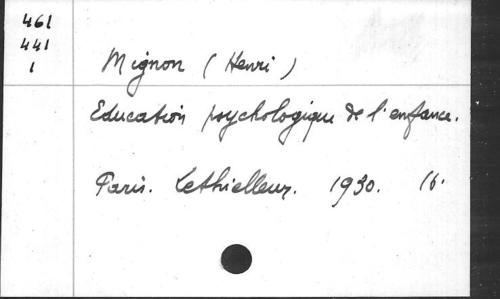 461
441
1
Mignon (Henri)
Education psychologique de l'enfance.
Paris. Lethielleux. 1930. 16.